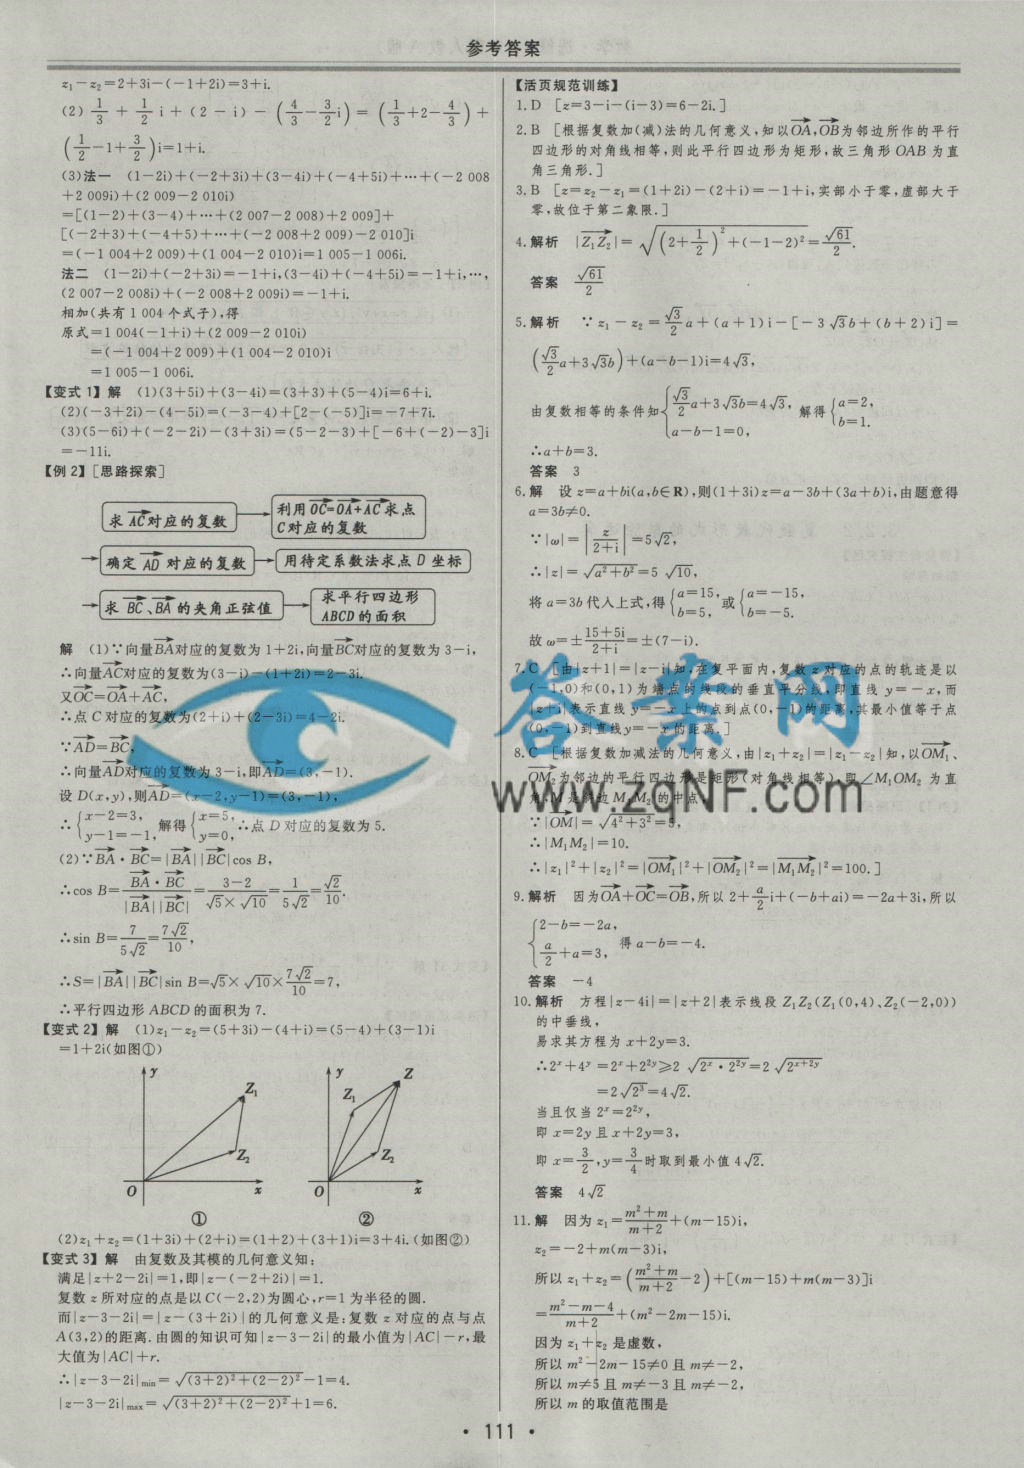 参考答案
z₁－z₂=2+3i-(-1+2i)=3+i.
(2) 1/3 + 1/2 i + (2 - i) - (4/3 - 3/2 i) = (1/3 + 2 - 4/3) +
(1/2 - 1 + 3/2)i=1+i.
(3)法一 (1-2i)+(-2+3i)+(3-4i)+(-4+5i)+…+(-2 008
+2 009i)+(2 009-2 010i)
=[(1-2)+(3-4)+…+(2 007-2 008)+2 009]+
[(-2+3)+(-4+5)+…+(-2 008+2 009)-2 010]i
=(-1 004+2 009)+(1 004-2 010)i=1 005-1 006i.
法二 (1-2i)+(-2+3i)=-1+i,(3-4i)+(-4+5i)=-1+i,…,
(2 007-2 008i)+(-2 008+2 009i)=-1+i.
相加(共有1 004个式子),得
原式=1 004(-1+i)+(2 009-2 010i)
=(-1 004+2 009)+(1 004-2 010)i
=1 005-1 006i.
【变式1】解 (1)(3+5i)+(3-4i)=(3+3)+(5-4)i=6+i.
(2)(-3+2i)-(4-5i)=(-3-4)+[2-(-5)]i=-7+7i.
(3)(5-6i)+(-2-2i)-(3+3i)=(5-2-3)+[-6+(-2)-3]i
=-11i.
【例2】[思路探索]
求AC对应的复数
利用OC=OA+AC求点
C对应的复数
确定AD对应的复数
用待定系数法求点D坐标
求BC、BA的夹角正弦值
求平行四边形
ABCD的面积
解 (1)∵向量BA对应的复数为1+2i,向量BC对应的复数为3-i,
∴向量AC对应的复数为(3-i)-(1+2i)=2-3i.
又OC=OA+AC,
∴点C对应的复数为(2+i)+(2-3i)=4-2i.
∵AD=BC,
∴向量AD对应的复数为3-i,即AD=(3,-1).
设D(x,y),则AD=(x-2,y-1)=(3,-1),
∴{x-2=3, y-1=-1, 解得{x=5, y=0, ∴点D对应的复数为5.
(2)∵BA·BC=|BA||BC|cos B,
∴cos B=BA·BC/|BA||BC|=(3-2)/(√5×√10)=1/(5√2)=√2/10.
∴sin B=7/(5√2)=7√2/10,
∴S=|BA||BC|sin B=√5×√10×7√2/10=7,
∴平行四边形ABCD的面积为7.
【变式2】解 (1)z₁-z₂=(5+3i)-(4+i)=(5-4)+(3-1)i
=1+2i(如图①)
y Z₁ Z₂ O x ①
y Z Z₁ Z₂ O x ②
(2)z₁+z₂=(1+3i)+(2+i)=(1+2)+(3+1)i=3+4i.(如图②)
【变式3】解 由复数及其模的几何意义知:
满足|z+2-2i|=1,即|z-(-2+2i)|=1.
复数z所对应的点是以C(-2,2)为圆心,r=1为半径的圆.
而|z-3-2i|=|z-(3+2i)|的几何意义是:复数z对应的点与点
A(3,2)的距离.由圆的知识可知|z-3-2i|的最小值为|AC|-r,最
大值为|AC|+r.
∴|z-3-2i|min=√((3+2)²+(2-2)²)-1=4.
|z-3-2i|max=√((3+2)²+(2-2)²)+1=6.
【活页规范训练】
1.D [z=3-i-(i-3)=6-2i.]
2.B [根据复数加(减)法的几何意义,知以OA,OB为邻边所作的平行
四边形的对角线相等,则此平行四边形为矩形,故三角形OAB为直
角三角形.]
3.B [z=z₂-z₁=(1+2i)-(2+i)=-1+i,实部小于零,虚部大于
零,故位于第二象限.]
4.解析 |Z₁Z₂|=√((2+1/2)²+(-1-2)²)=√61/2.
答案 √61/2
5.解析 ∵z₁-z₂=√3/2 a+(a+1)i-[-3√3b+(b+2)i]=
(√3/2 a+3√3b)+(a-b-1)i=4√3,
由复数相等的条件知{√3/2 a+3√3b=4√3, a-b-1=0, 解得{a=2, b=1.
∴a+b=3.
答案 3
6.解 设z=a+bi(a,b∈R),则(1+3i)z=a-3b+(3a+b)i,由题意得
a=3b≠0.
∵|ω|=|z/(2+i)|=5√2,
∴|z|=√(a²+b²)=5√10,
将a=3b代入上式,得{a=15, b=5, 或{a=-15, b=-5.
故ω=±(15+5i)/(2+i)=±(7-i).
7.C [由|z+1|=|z-i|知,在复平面内,复数z对应的点的轨迹是以
(-1,0)和(0,1)为端点的线段的垂直平分线,即直线y=-x,而
|z+i|表示直线y=-x上的点到点(0,-1)的距离,其最小值等于点
(0,-1)到直线y=-x的距离.]
8.C [根据复数加减法的几何意义,由|z₁+z₂|=|z₁-z₂|知,以OM₁、
OM₂为邻边的平行四边形是矩形(对角线相等),即∠M₁OM₂为直
角,M是斜边M₁M₂的中点,
∵|OM|=√(4²+3²)=5,
∴|M₁M₂|=10.
∴|z₁|²+|z₂|²=|OM₁|²+|OM₂|²=|M₁M₂|²=100.]
9.解析 因为OA+OC=OB,所以2+a/2 i+(-b+ai)=-2a+3i,所以
{2-b=-2a, a/2+a=3, 得a-b=-4.
答案 -4
10.解析 方程|z-4i|=|z+2|表示线段Z₁Z₂(Z₁(0,4)、Z₂(-2,0))
的中垂线,
易求其方程为x+2y=3.
∴2ˣ+4ʸ=2ˣ+2²ʸ≥2√(2ˣ·2²ʸ)=2√(2ˣ⁺²ʸ)
=2√(2³)=4√2.
当且仅当2ˣ=2²ʸ,
即x=2y且x+2y=3,
即x=3/2,y=3/4时取到最小值4√2.
答案 4√2
11.解 因为z₁=(m²+m)/(m+2)+(m-15)i,
z₂=-2+m(m-3)i,
所以z₁+z₂=((m²+m)/(m+2)-2)+[(m-15)+m(m-3)]i
=(m²-m-4)/(m+2)+(m²-2m-15)i.
因为z₁+z₂是虚数,
所以m²-2m-15≠0且m≠-2,
所以m≠5且m≠-3且m≠-2,
所以m的取值范围是
答案网
www.zqNF.com
• 111 •